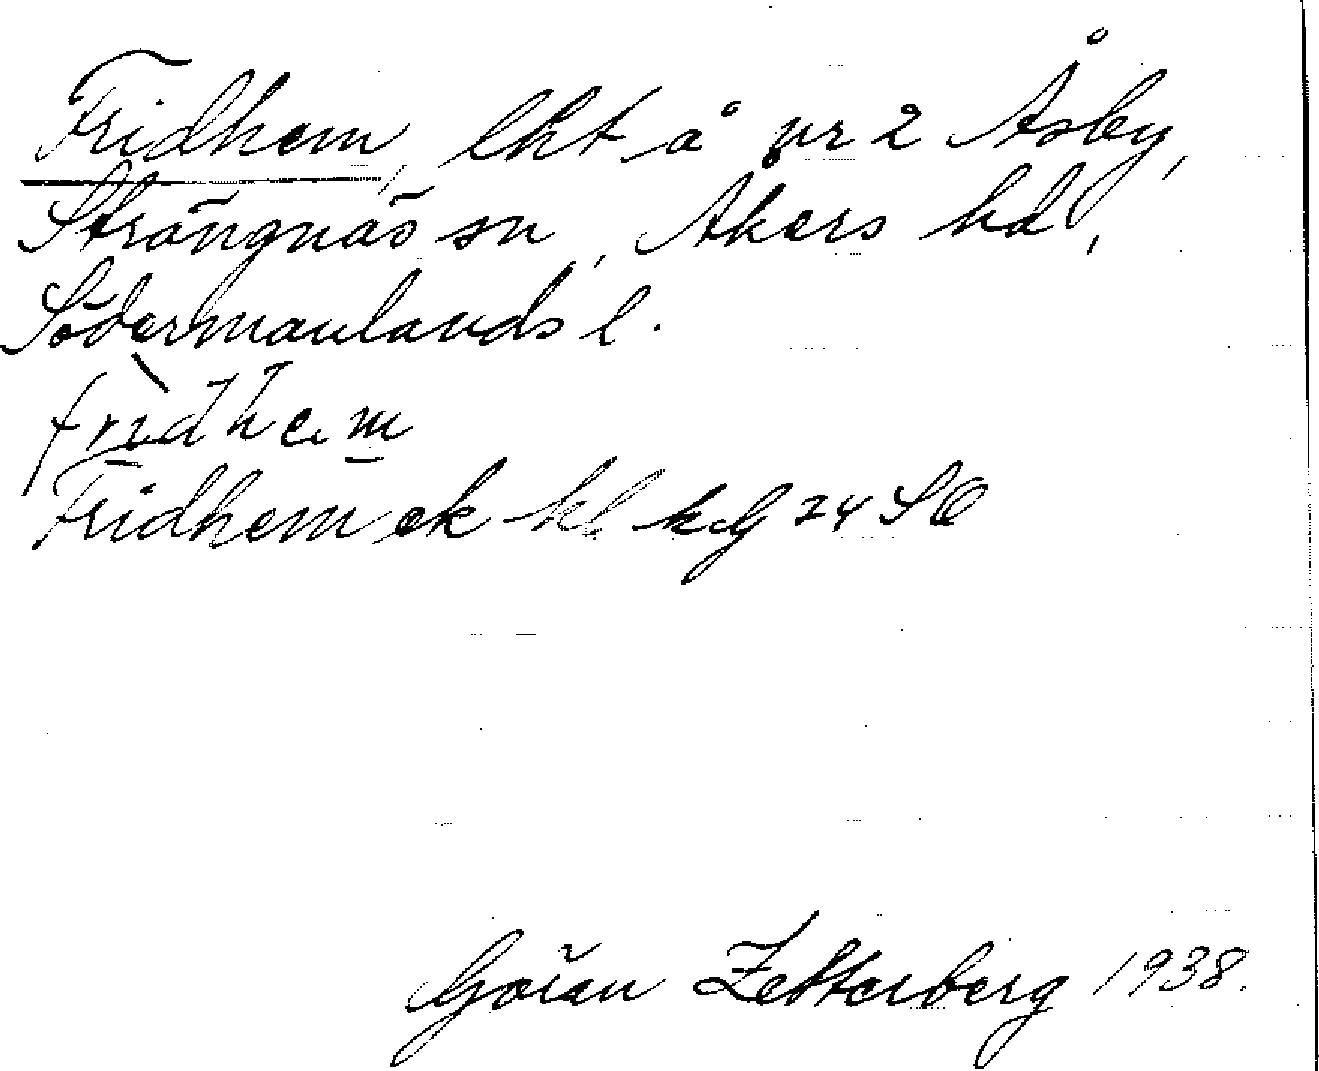 Fridhem, lht å nr 2 Åsby,
Strängnäs sn, Åkers hd,
Södermanlands l.
frìdhem
Fridhem ek kl kg 24 SO
Göran Zetterberg 1938.